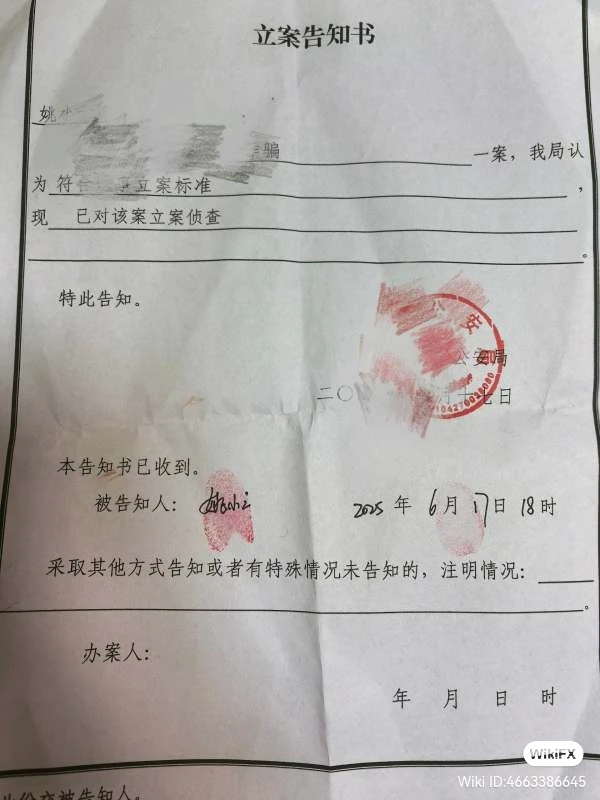 立案告知书
姚小
骗 一案，我局认
为 符 立案标准 ，
现 已对该案立案侦查
。
特此告知。
公安
公安局
二〇 月十七日
本告知书已收到。
被告知人： 姚小云 2025 年 6 月 17 日 18 时
采取其他方式告知或者有特殊情况未告知的，注明情况：
。
办案人：
年 月 日 时
WikiFX
Wiki ID:4663386645
此份交被告知人。